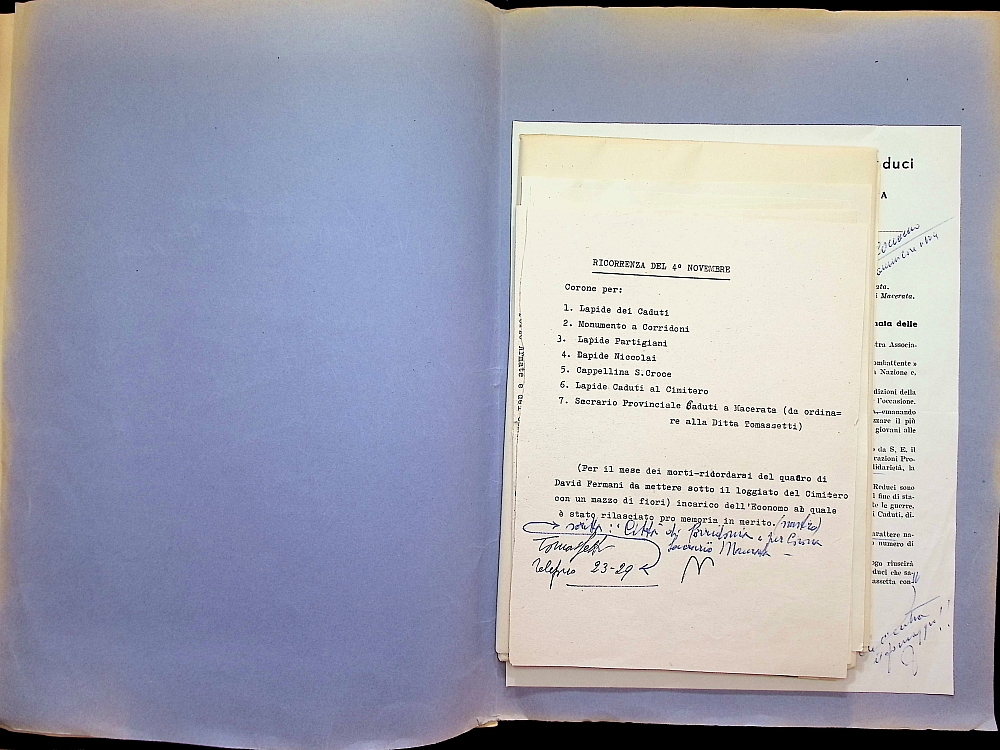 RICORRENZA DEL 4° NOVEMBRE
Corone per:
1. Lapide dei Caduti
2. Monumento a Corridoni
3. Lapide Partigiani
4. Lapide Niccolai
5. Cappellina S.Croce
6. Lapide Caduti al Cimitero
7. Sacrario Provinciale Caduti a Macerata (da ordina=
re alla Ditta Tomassetti)
(Per il mese dei morti-ridordarsi del quadro di
David Fermani da mettere sotto il loggiato del Cimitero
con un mazzo di fiori) incarico dell'Economo ab quale
è stato rilasciato pro memoria in merito. (nastro)
scritta: "Città di Corridonia" per Corona
Tomassetti Sacrario Macerata
Telefono 23-29
duci
A
Economo
ata.
i Macerata.
nata delle
tra Associa-
mbattente »
a Nazione e.
dizioni della
l'occasione.
emanando
zare il più
giovani alle
da S. E. il
razioni Pro-
lidarietà, la
Reduci sono
l fine di sta-
te le guerre.
i Caduti. di-
arattere na-
numero di
ogo riuscirà
duci che sa-
assetta con